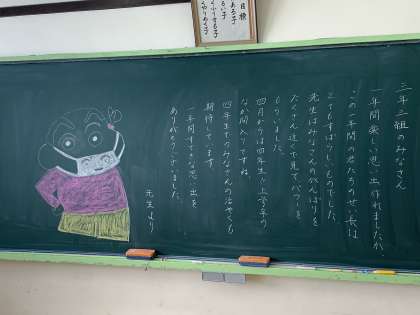 三年三組のみなさん
一年間楽しい思い出作れましたか。
この一年間の君たちのせい長は
とてもすばらしいものでした。
先生はみなさんのがんばりを
たくさん近くで見てパワーを
もらいました。
四月からは四年生、上学年の
なか間入りですね。
四年生でのみなさんの活やくも
期待しています。
一年間すてきな思い出を
ありがとうございました。
先生より
目標